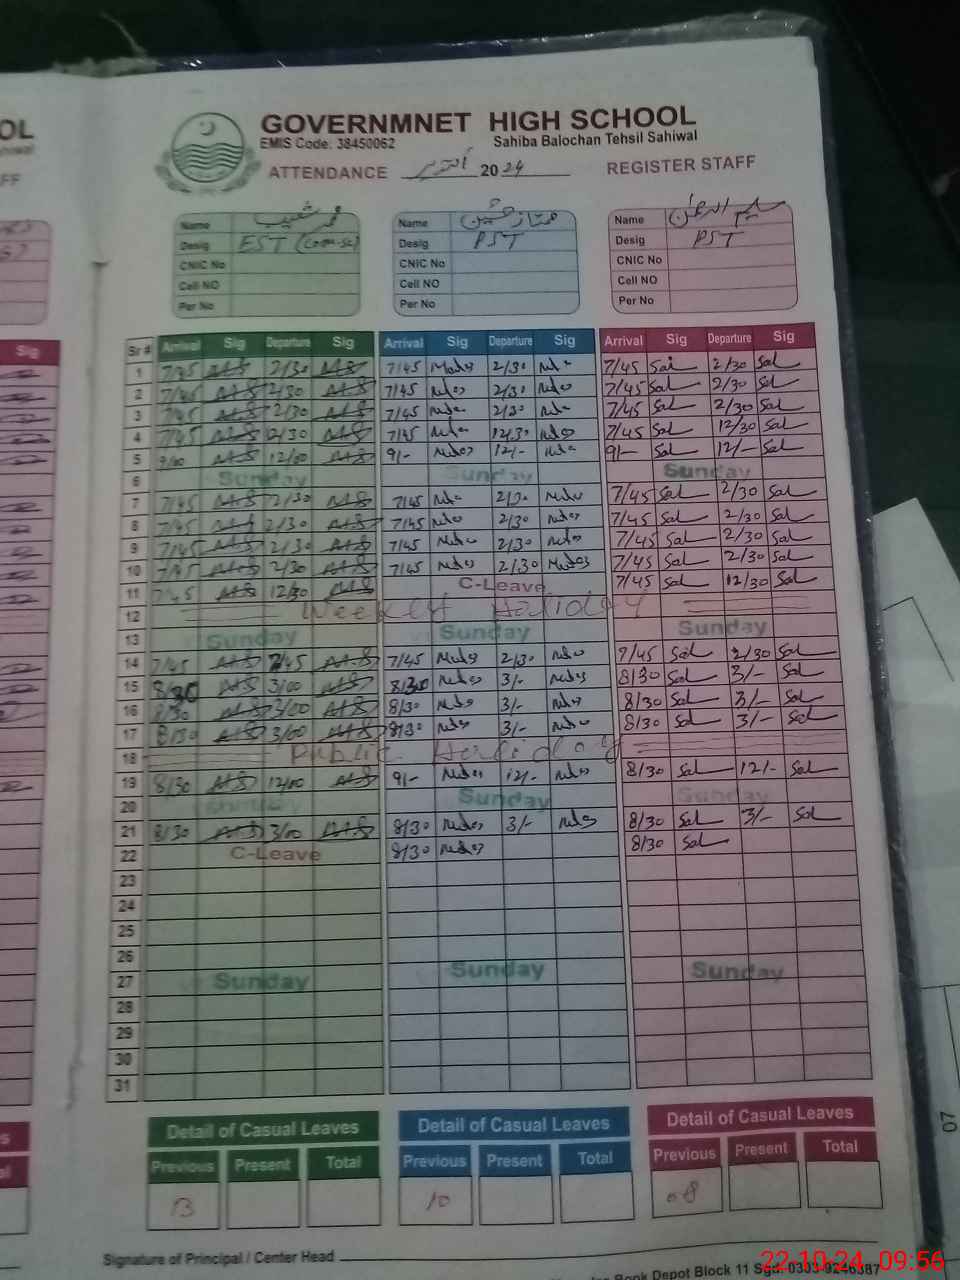 OL
GOVERNMNET HIGH SCHOOL
EMIS Code: 38450062 Sahiba Balochan Tehsil Sahiwal
FF
ATTENDANCE اکتوبر 2024 REGISTER STAFF
Name قمر شعیب Name ممتاز حسین Name سلیم الرحمٰن
Desig EST (Com-Sc) Desig PST Desig PST
CNIC No CNIC No CNIC No
Cell NO Cell NO Cell NO
Per No Per No Per No
Sig Sr # Arrival Sig Departure Sig Arrival Sig Departure Sig Arrival Sig Departure Sig
1 7/45 2/30 7/45 2/30 7/45 Sal 2/30 Sal
2 7/45 2/30 7/45 2/30 7/45 Sal 2/30 Sal
3 7/45 2/30 7/45 2/30 7/45 Sal 2/30 Sal
4 7/45 12/30 7/45 12/30 7/45 Sal 12/30 Sal
5 9/00 12/00 9/- 12/- 9/- Sal 12/- Sal
6 Sunday Sunday Sunday
7 7/45 2/30 7/45 2/30 7/45 Sal 2/30 Sal
8 7/45 2/30 7/45 2/30 7/45 Sal 2/30 Sal
9 7/45 2/30 7/45 2/30 7/45 Sal 2/30 Sal
10 7/45 2/30 7/45 2/30 7/45 Sal 2/30 Sal
11 7/45 12/30 C-Leave 7/45 Sal 12/30 Sal
12 Weekly Holiday
13 Sunday Sunday Sunday
14 7/45 7/45 2/30 7/45 Sal 2/30 Sal
15 8/30 3/00 8/30 3/- 8/30 Sal 3/- Sal
16 8/30 3/00 8/30 3/- 8/30 Sal 3/- Sal
17 8/30 3/00 8/30 3/- 8/30 Sal 3/- Sal
18 Public Holiday
19 8/30 12/00 9/- 12/- 8/30 Sal 12/- Sal
20 Sunday Sunday Sunday
21 8/30 3/00 8/30 3/- 8/30 Sal 3/- Sal
22 C-Leave 8/30 8/30 Sal
23
24
25
26
27 Sunday Sunday Sunday
28
29
30
31
Detail of Casual Leaves Detail of Casual Leaves Detail of Casual Leaves
Previous Present Total Previous Present Total Previous Present Total
13 10 08
Signature of Principal / Center Head
Book Depot Block 11 Sgd. 0303-9246387
22.10.24 09:56
07